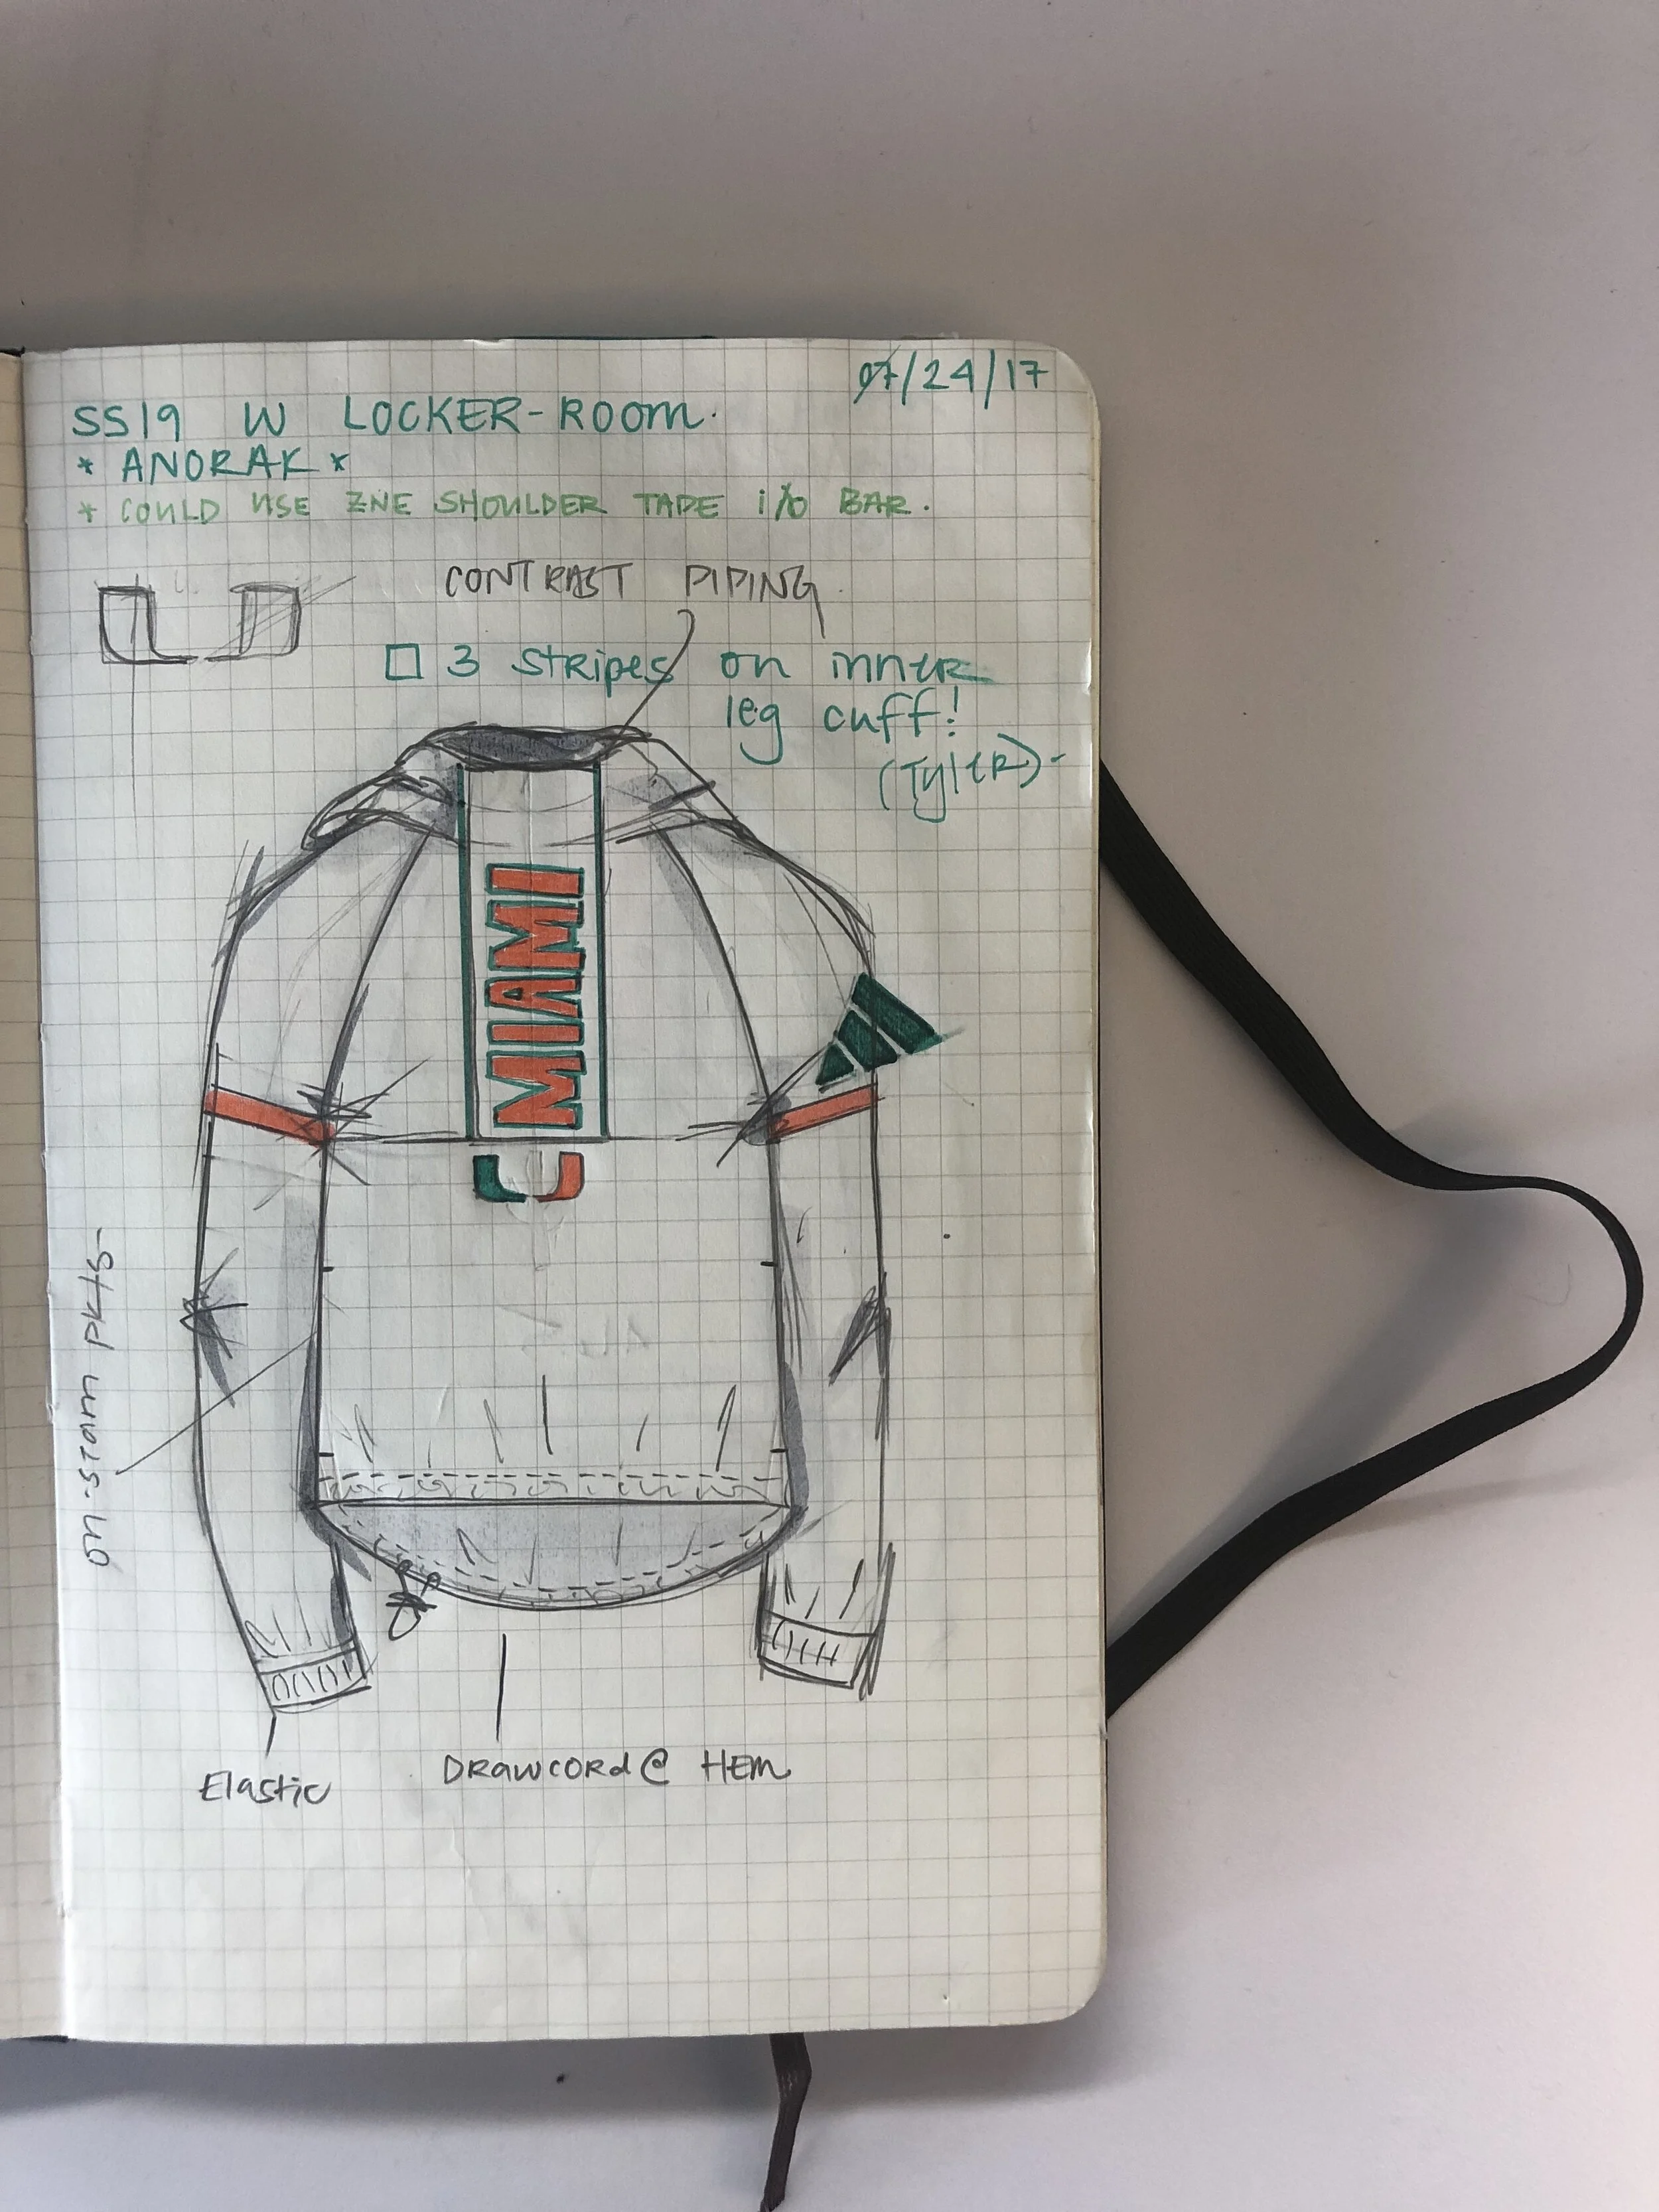 07/24/17
SS19 W LOCKER-ROOM.
* ANORAK *
* COULD USE ZNE SHOULDER TAPE i/o BAR.
CONTRAST PIPING
3 stripes on inner
leg cuff!
(Tyler)-
MIAMI
on-seam pkts-
Elastic
DRAWCORD @ HEM